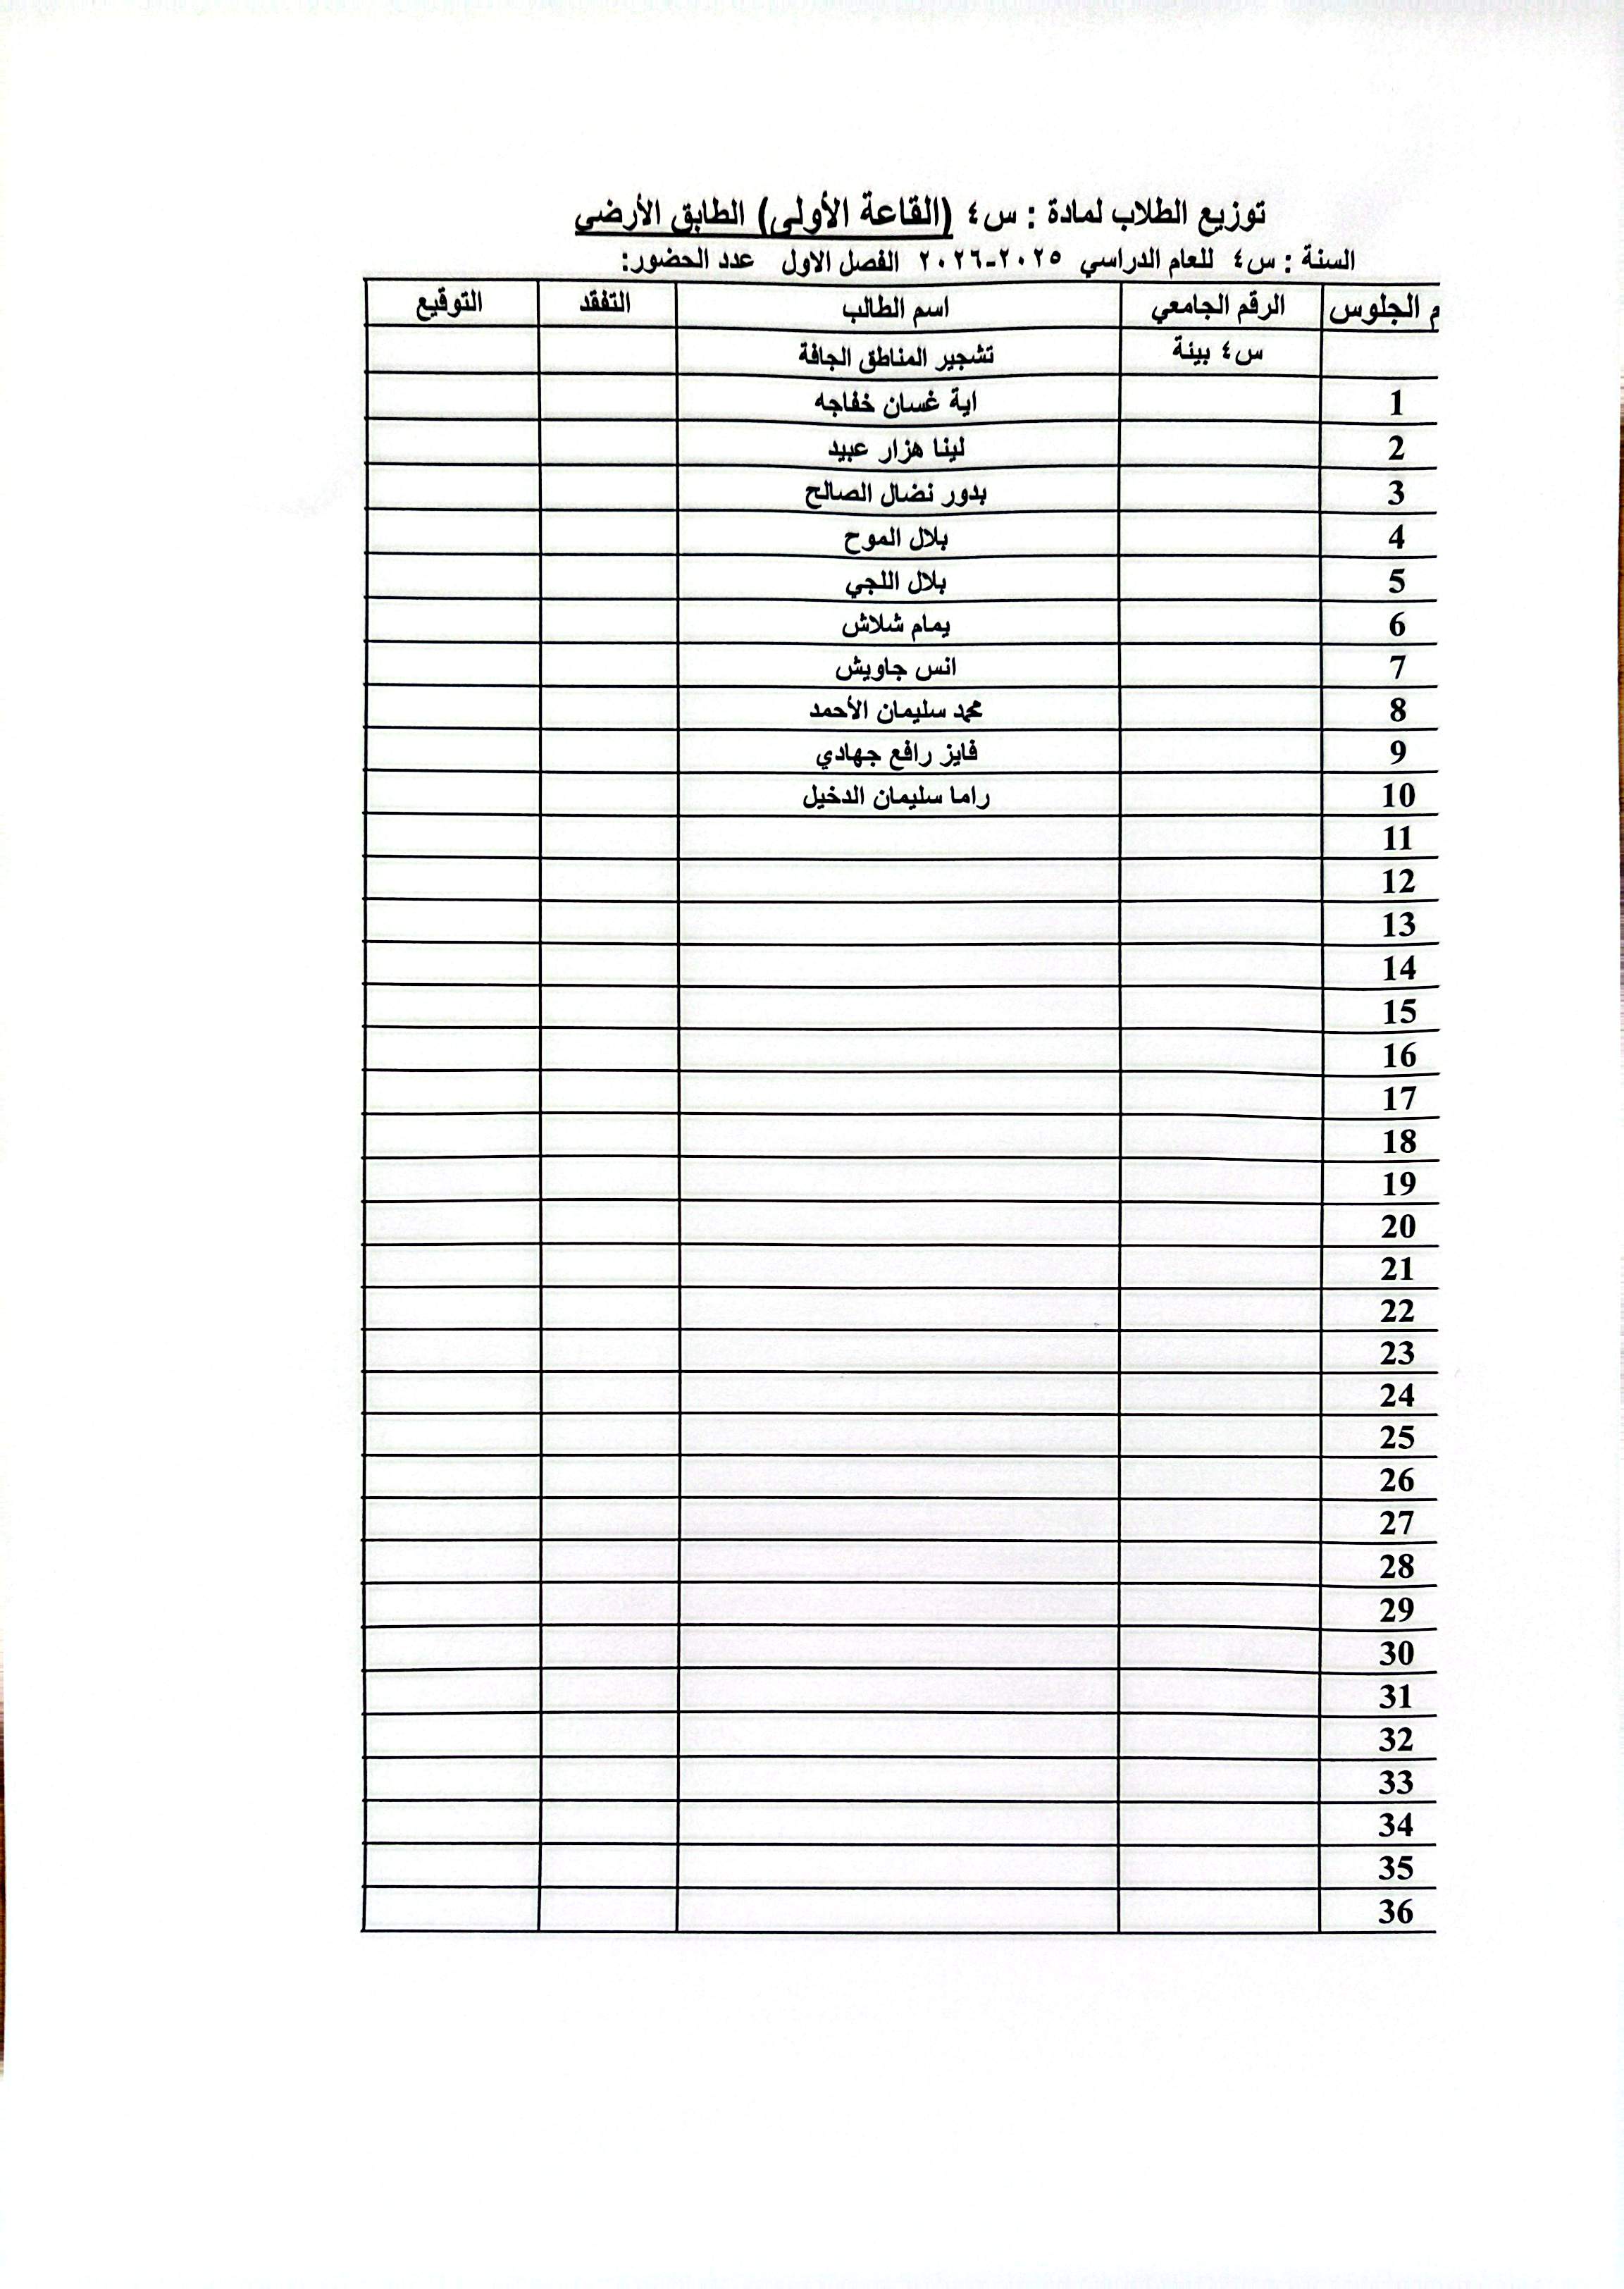 توزيع الطلاب لمادة : س٤ (القاعة الأولى) الطابق الأرضي
السنة : س٤ للعام الدراسي ٢٠٢٥-٢٠٢٦ الفصل الاول عدد الحضور:
م الجلوس الرقم الجامعي اسم الطالب التفقد التوقيع
س٤ بيئة تشجير المناطق الجافة
1 اية غسان خفاجه
2 لينا هزار عبيد
3 بدور نضال الصالح
4 بلال الموح
5 بلال اللجي
6 يمام شلاش
7 انس جاويش
8 محمد سليمان الأحمد
9 فايز رافع جهادي
10 راما سليمان الدخيل
11
12
13
14
15
16
17
18
19
20
21
22
23
24
25
26
27
28
29
30
31
32
33
34
35
36